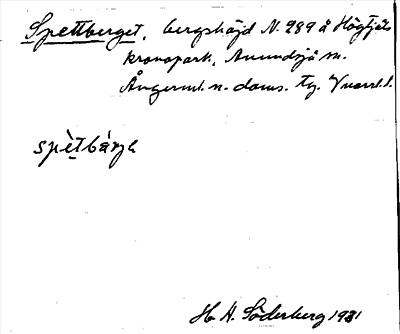 Spettberget, bergshöjd N. 289 å Högtjäls
kronopark, Anundsjö sn.
Ångerml. n. doms. tg. Vnorrl. l.
spètbárjɛ
H. A. Söderberg 1931